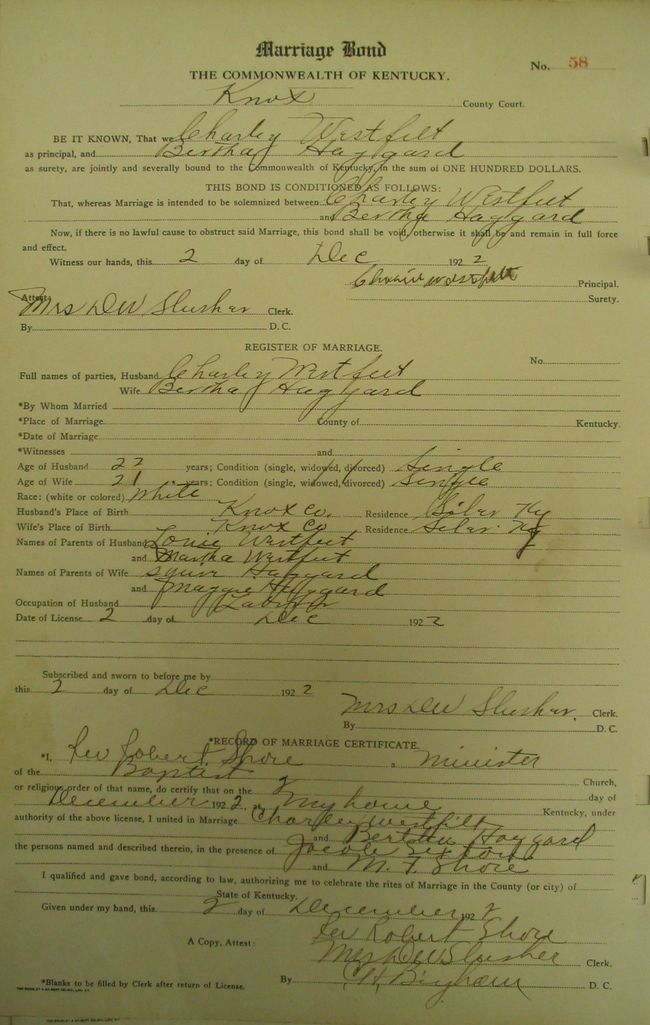 Marriage Bond
No. 58
THE COMMONWEALTH OF KENTUCKY.
Knox County Court.
BE IT KNOWN, That we Charley Westfelt
as principal, and Bertha Haggard
as surety, are jointly and severally bound to the Commonwealth of Kentucky, in the sum of ONE HUNDRED DOLLARS.
THIS BOND IS CONDITIONED AS FOLLOWS:
That, whereas Marriage is intended to be solemnized between Charley Westfelt
and Bertha Haggard
Now, if there is no lawful cause to obstruct said Marriage, this bond shall be void, otherwise it shall be and remain in full force
and effect.
Witness our hands, this 2 day of Dec 1922
Principal.
Attest: Surety.
Mrs DW Slusher Clerk.
By D. C.
REGISTER OF MARRIAGE.
No.
Full names of parties, Husband Charley Westfelt
Wife Bertha Haggard
*By Whom Married
*Place of Marriage County of Kentucky.
*Date of Marriage
*Witnesses and
Age of Husband 22 years; Condition (single, widowed, divorced) Single
Age of Wife 21 years; Condition (single, widowed, divorced) Single
Race: (white or colored) White
Husband's Place of Birth Knox Co. Residence Siler Ky
Wife's Place of Birth Knox Co Residence Siler Ky
Names of Parents of Husband Westfelt
and Martha Westfelt
Names of Parents of Wife Squire Haggard
and Maggie Haggard
Occupation of Husband Labor
Date of License 2 day of Dec 1922
Subscribed and sworn to before me by
this 2 day of Dec 1922
Mrs DW Slusher. Clerk.
By D. C.
*RECORD OF MARRIAGE CERTIFICATE.
*I, Rev Robert Shore a Minister
of the Baptist Church,
or religious order of that name, do certify that on the 2 day of
December 1922 at My home Kentucky, under
authority of the above license, I united in Marriage Charley Westfelt
and Bertha Haggard
the persons named and described therein, in the presence of Jacob Sexton
and M. F. Shore
I qualified and gave bond, according to law, authorizing me to celebrate the rites of Marriage in the County (or city) of
State of Kentucky.
Given under my hand, this 2 day of December 1922
Rev Robert Shore
A Copy, Attest: Mrs DW Slusher Clerk.
*Blanks to be filled by Clerk after return of License. By C H Bingham D. C.